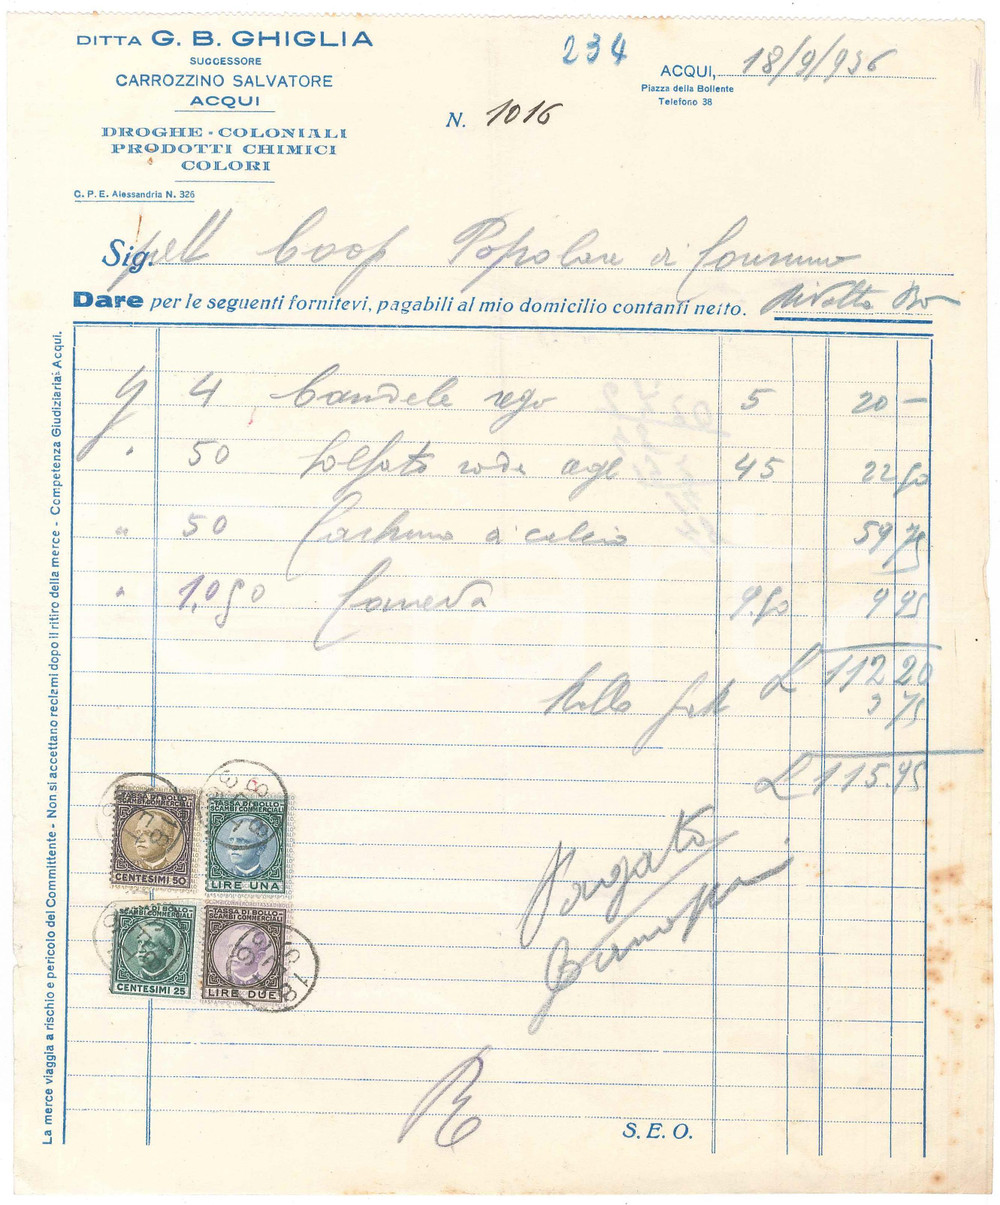 DITTA G. B. GHIGLIA
SUCCESSORE
CARROZZINO SALVATORE
ACQUI
DROGHE - COLONIALI
PRODOTTI CHIMICI
COLORI
C. P. E. Alessandria N. 326
234
N. 1016
ACQUI, 18/9/936
Piazza della Bollente
Telefono 38
Sig. Coop Popolare di Consumo
Dare per le seguenti fornitevi, pagabili al mio domicilio contanti netto. Rivalta
4 Candele 5 20 —
" 50 Solfato soda 45 22 50
" 50 a calcio 59 75
" 1,050 9,50 9 95
L 112 20
Bollo fatt 3 75
L 115.95
TASSA DI BOLLO
SCAMBI COMMERCIALI
CENTESIMI 50
TASSA DI BOLLO
SCAMBI COMMERCIALI
LIRE UNA
TASSA DI BOLLO
SCAMBI COMMERCIALI
CENTESIMI 25
TASSA DI BOLLO
SCAMBI COMMERCIALI
LIRE DUE
Pagato
S. E. O.
La merce viaggia a rischio e pericolo del Committente - Non si accettano reclami dopo il ritiro della merce - Competenza Giudiziaria: Acqui.